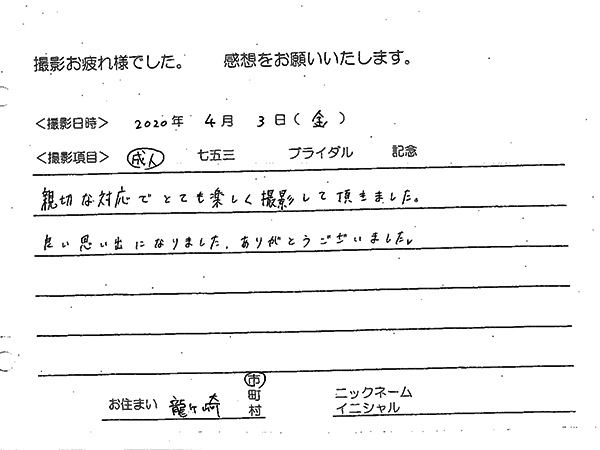 撮影お疲れ様でした。　感想をお願いいたします。
＜撮影日時＞ 2020年 4月 3日（金）
＜撮影項目＞ 成人 七五三 ブライダル 記念
親切な対応でとても楽しく撮影して頂きました。
良い思い出になりました。ありがとうございました。
お住まい 龍ヶ崎 市 町 村
ニックネーム
イニシャル